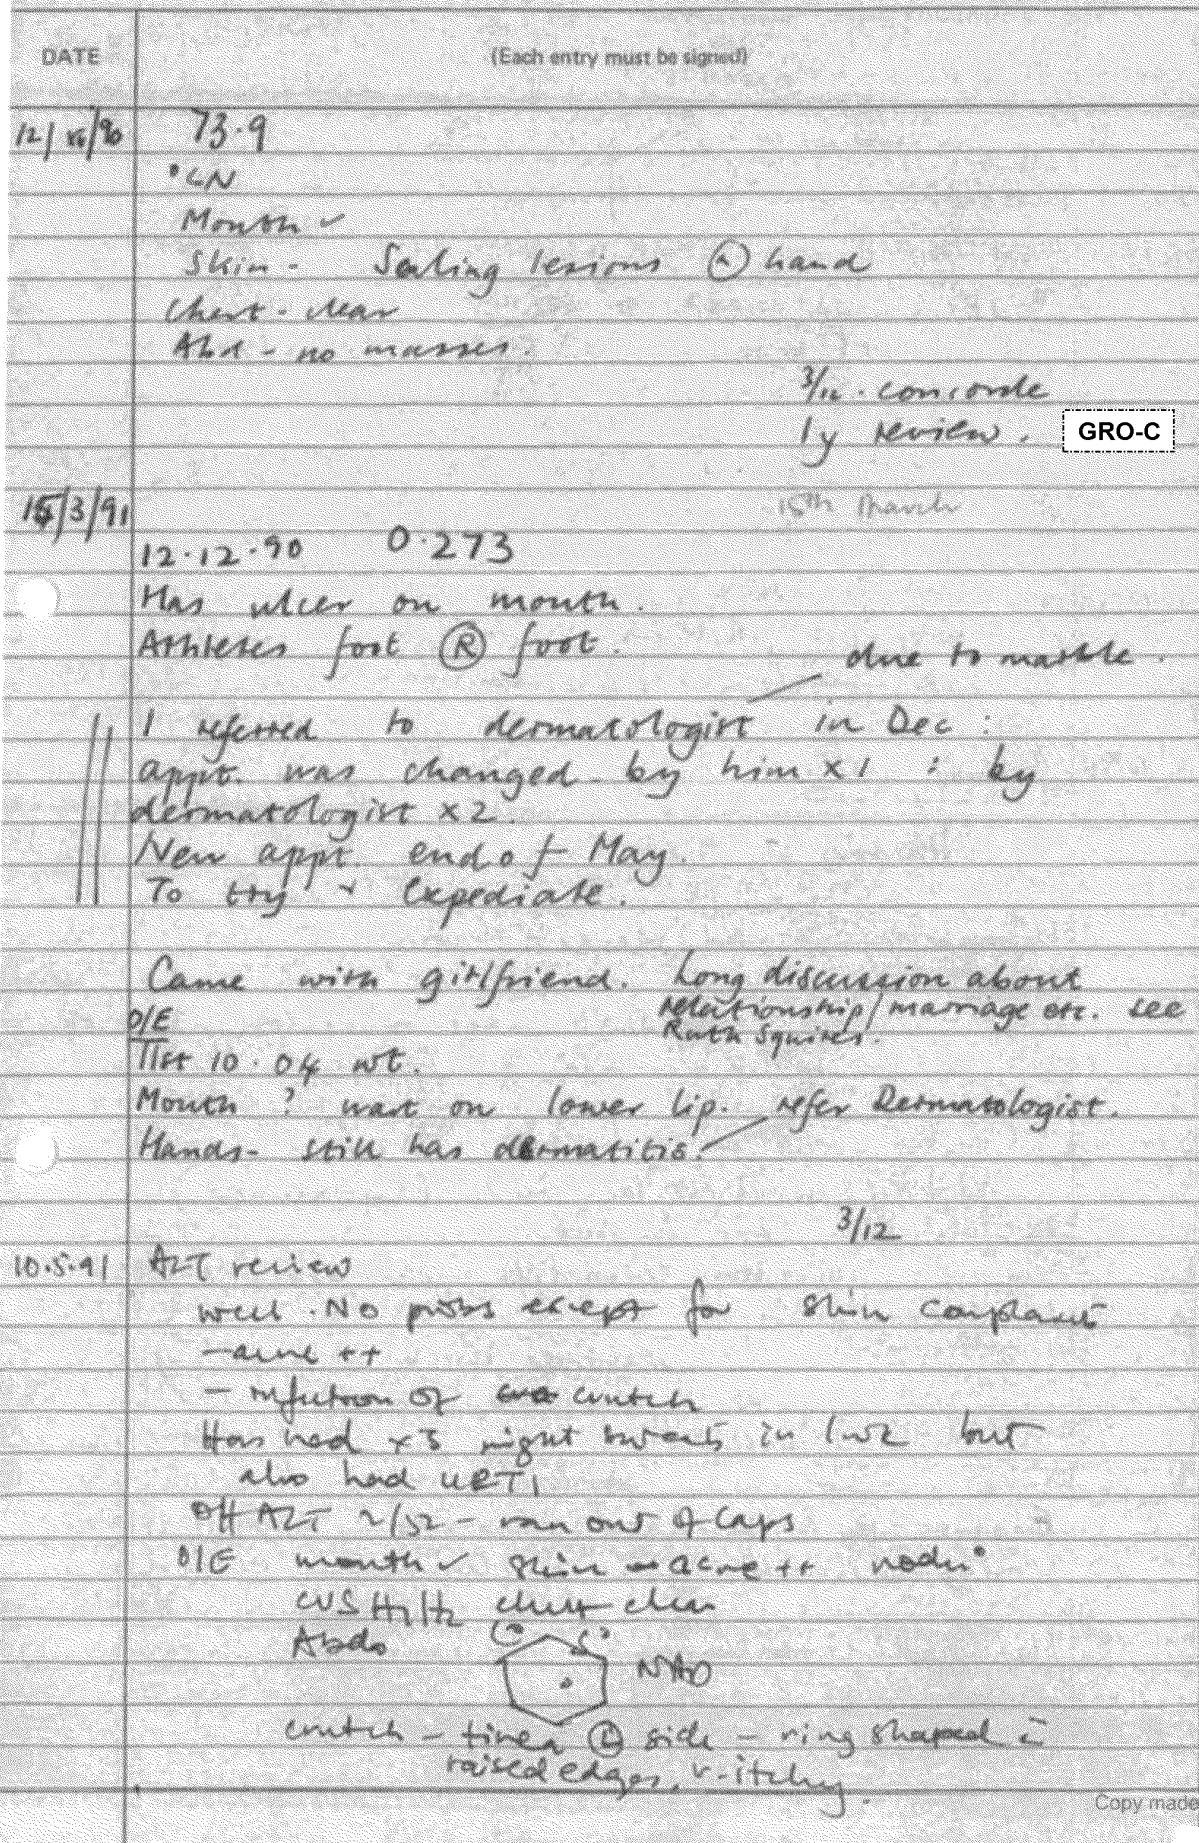 DATE (Each entry must be signed)
12/ /90 73.9
°LN
Mouth ✓
Skin - Scaling lesions hand
Chest - clear
Abd - no masses.
3/12 . concorde
1 y review. GRO-C
15/3/91 15th March
12.12.90 0.273
Has ulcer on mouth.
Athletes foot Ⓡ foot.
due to
I referred to dermatologist in Dec :
appt. was changed by him x 1 : by
dermatologist x 2.
New appt. end of May.
To try + Expediate.
Came with girlfriend. Long discussion about
relationship/marriage etc. see
Ruth Squires.
O/E
11st 10.04 wt.
Mouth ? wart on lower lip. refer Dermatologist.
Hands - still has dermatitis.
3/12
10.5.91 AZT review
well. No probs except for skin complaints
- acne ++
- infection of crutch
Has had x3 night sweats in 1 wk but
also had URTI
DH AZT 2/52 - ran out of caps
O/E mouth ✓ skin - acne ++ nodes°
CVS H1/H2 chest clear
Abdo NAD
crutch - tinea Ⓛ side - ring shaped c̄
raised edges, v. itchy.
Copy made